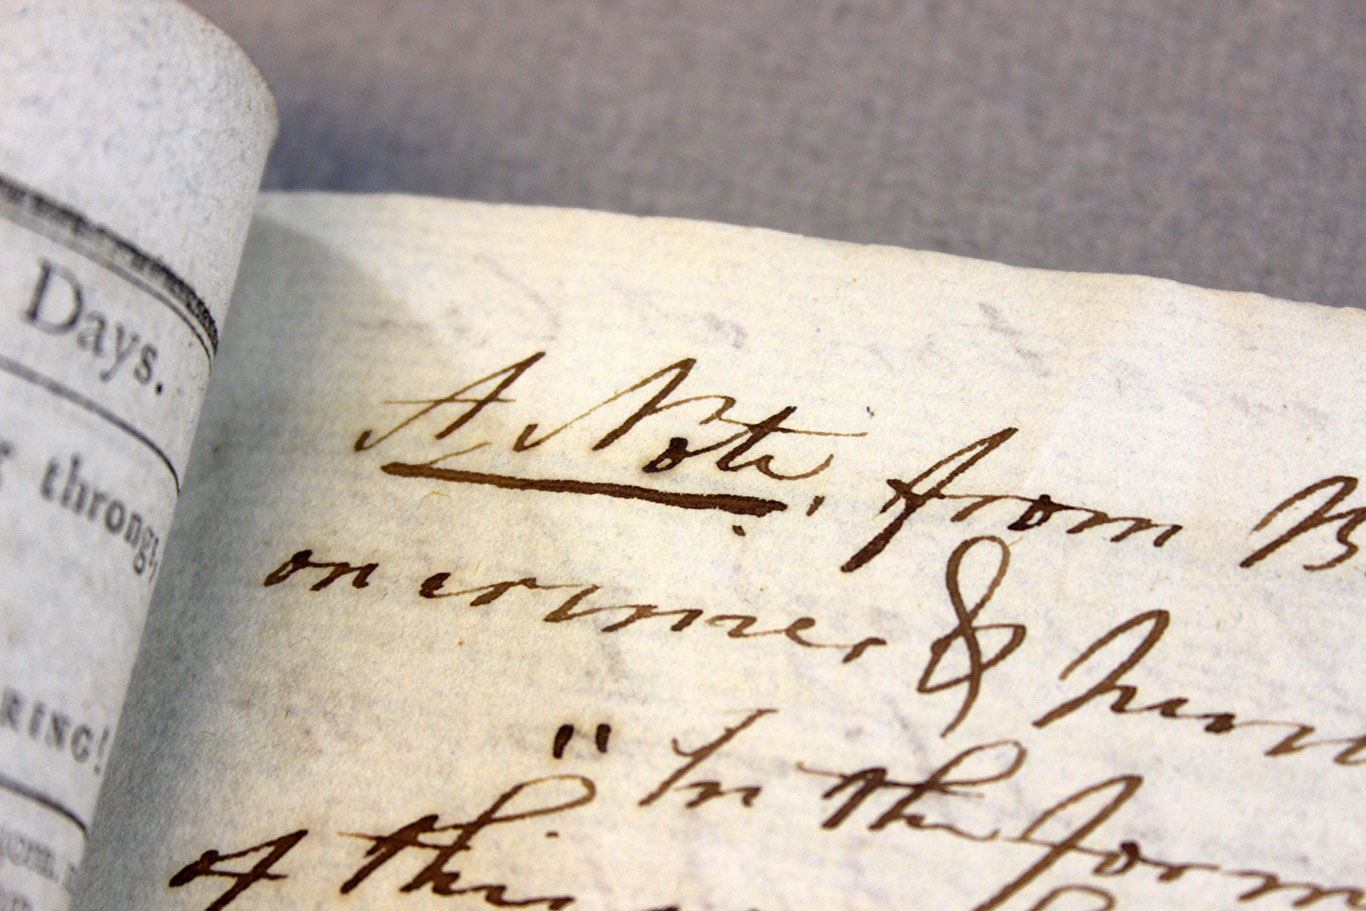 Days.
through,
RING!
A Note, from B
on crimes & pun
"In the form
of this